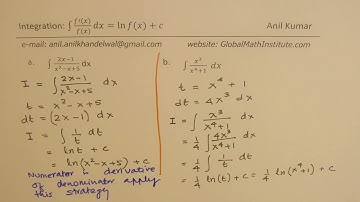 Integration: ∫ f'(x)/f(x) dx = ln f(x) + c
Anil Kumar
e-mail: anil.anilkhandelwal@gmail.com website: GlobalMathInstitute.com
a. ∫ 2x-1/x²-x+5 dx
I = ∫ 2x-1/x²-x+5 dx
t = x²-x+5
dt = (2x-1) dx
I = ∫ 1/t dt
= ln t + c
= ln (x²-x+5) + c
Numerator is derivative
of denominator apply
this strategy
b. ∫ x³/x⁴+1 dx
t = x⁴ + 1
dt = 4x³ dx
I = ∫ x³/x⁴+1 dx
= 1/4 ∫ 4x³/x⁴+1 dx
= 1/4 ∫ 1/t dt
= 1/4 ln(t) + c = 1/4 ln(x⁴+1) + c